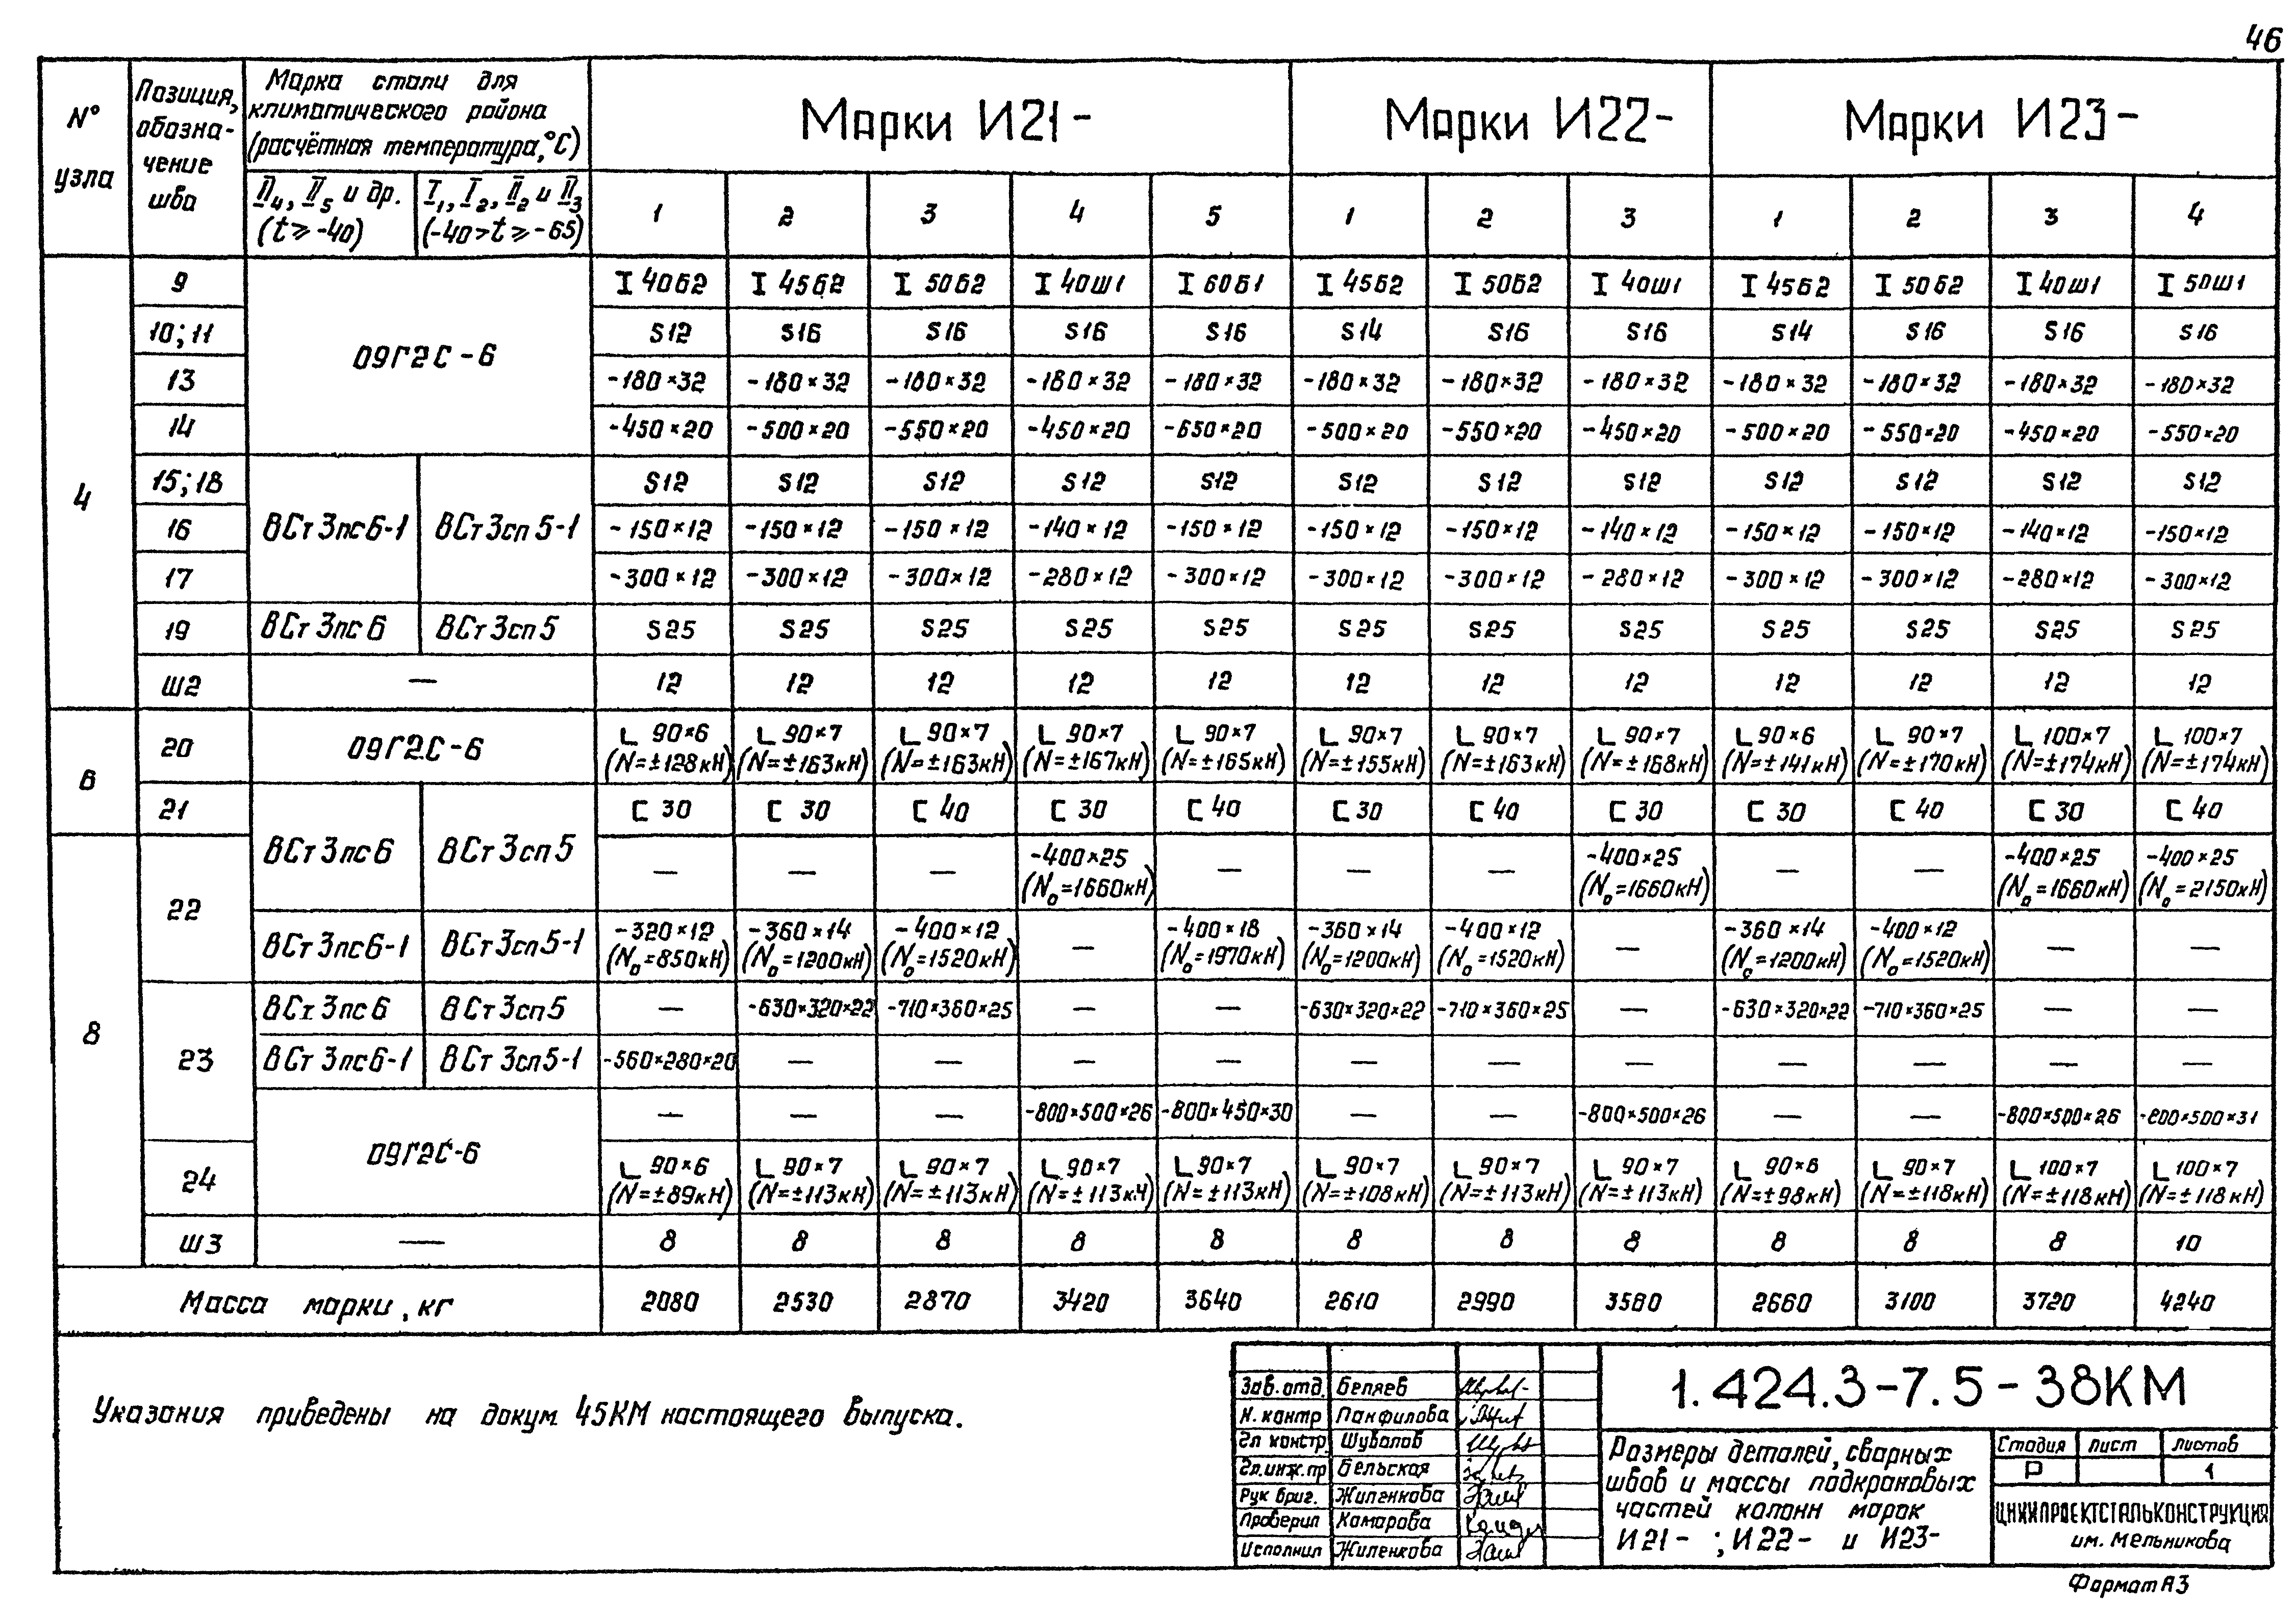 46
№ узла
Позиция, обозна-чение шва
Марка стали для климатического района (расчётная температура, °С)
Марки И21-
Марки И22-
Марки И23-
II₄, II₅ и др. (t ≥ -40)
I₁, I₂, II₂ и II₃ (-40 > t ≥ -65)
1 2 3 4 5 1 2 3 1 2 3 4
4
9 09Г2С-6 I 40Б2 I 45Б2 I 50Б2 I 40Ш1 I 60Б1 I 45Б2 I 50Б2 I 40Ш1 I 45Б2 I 50Б2 I 40Ш1 I 50Ш1
10; 11 S12 S16 S16 S16 S16 S14 S16 S16 S14 S16 S16 S16
13 -180×32 -180×32 -180×32 -180×32 -180×32 -180×32 -180×32 -180×32 -180×32 -180×32 -180×32 -180×32
14 -450×20 -500×20 -550×20 -450×20 -650×20 -500×20 -550×20 -450×20 -500×20 -550×20 -450×20 -550×20
15; 18 S12 S12 S12 S12 S12 S12 S12 S12 S12 S12 S12 S12
16 ВСт3пс6-1 ВСт3сп5-1 -150×12 -150×12 -150×12 -140×12 -150×12 -150×12 -150×12 -140×12 -150×12 -150×12 -140×12 -150×12
17 -300×12 -300×12 -300×12 -280×12 -300×12 -300×12 -300×12 -280×12 -300×12 -300×12 -280×12 -300×12
19 ВСт3пс6 ВСт3сп5 S25 S25 S25 S25 S25 S25 S25 S25 S25 S25 S25 S25
Ш2 — 12 12 12 12 12 12 12 12 12 12 12 12
6
20 09Г2С-6 L 90×6 L 90×7 L 90×7 L 90×7 L 90×7 L 90×7 L 90×7 L 90×7 L 90×6 L 90×7 L 100×7 L 100×7
(N=±128кН) (N=±163кН) (N=±163кН) (N=±167кН) (N=±165кН) (N=±155кН) (N=±163кН) (N=±168кН) (N=±141кН) (N=±170кН) (N=±174кН) (N=±174кН)
21 [ 30 [ 30 [ 40 [ 30 [ 40 [ 30 [ 40 [ 30 [ 30 [ 40 [ 30 [ 40
8
22 ВСт3пс6 ВСт3сп5 — — — -400×25 — — — -400×25 — — -400×25 -400×25
(N₀=1660кН) (N₀=1660кН) (N₀=1660кН) (N₀=2150кН)
ВСт3пс6-1 ВСт3сп5-1 -320×12 -360×14 -400×12 — -400×18 -360×14 -400×12 — -360×14 -400×12 — —
(N₀=850кН) (N₀=1200кН) (N₀=1520кН) (N₀=1970кН) (N₀=1200кН) (N₀=1520кН) (N₀=1200кН) (N₀=1520кН)
23 ВСт3пс6 ВСт3сп5 — -630×320×22 -710×360×25 — — -630×320×22 -710×360×25 — -630×320×22 -710×360×25 — —
ВСт3пс6-1 ВСт3сп5-1 -560×280×20 — — — — — — — — — — —
09Г2С-6 — — — -800×500×26 -800×450×30 — — -800×500×26 — — -800×500×26 -800×500×31
24 L 90×6 L 90×7 L 90×7 L 90×7 L 90×7 L 90×7 L 90×7 L 90×7 L 90×6 L 90×7 L 100×7 L 100×7
(N=±89кН) (N=±113кН) (N=±113кН) (N=±113кН) (N=±113кН) (N=±108кН) (N=±113кН) (N=±113кН) (N=±98кН) (N=±118кН) (N=±118кН) (N=±118кН)
Ш3 — 8 8 8 8 8 8 8 8 8 8 8 10
Масса марки, кг 2080 2530 2870 3420 3640 2610 2990 3560 2660 3100 3720 4240
Указания приведены на докум. 45КМ настоящего выпуска.
Зав. отд. Беляев
Н. контр Панфилова
Гл констр. Шувалов
Гл. инж. пр Бельская
Рук бриг. Жиленкова
Проверил Комарова
Исполнил Жиленкова
1.424.3-7.5-38КМ
Размеры деталей, сварных
швов и массы подкрановых
частей колонн марок
И21- ; И22- и И23-
Стадия Лист Листов
Р 1
ЦНИИПРОЕКТСТАЛЬКОНСТРУКЦИЯ
им. Мельникова
Формат А3